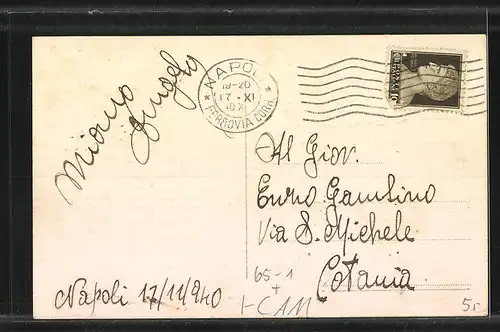 Miano
Angelo
NAPOLI
19-20
17 · XI
FERROVIA CORR.
Al Giov.
Enzo Gambino
Via S. Michele
Catania
65-1
+
CAM
Napoli 17/11/940
5.-